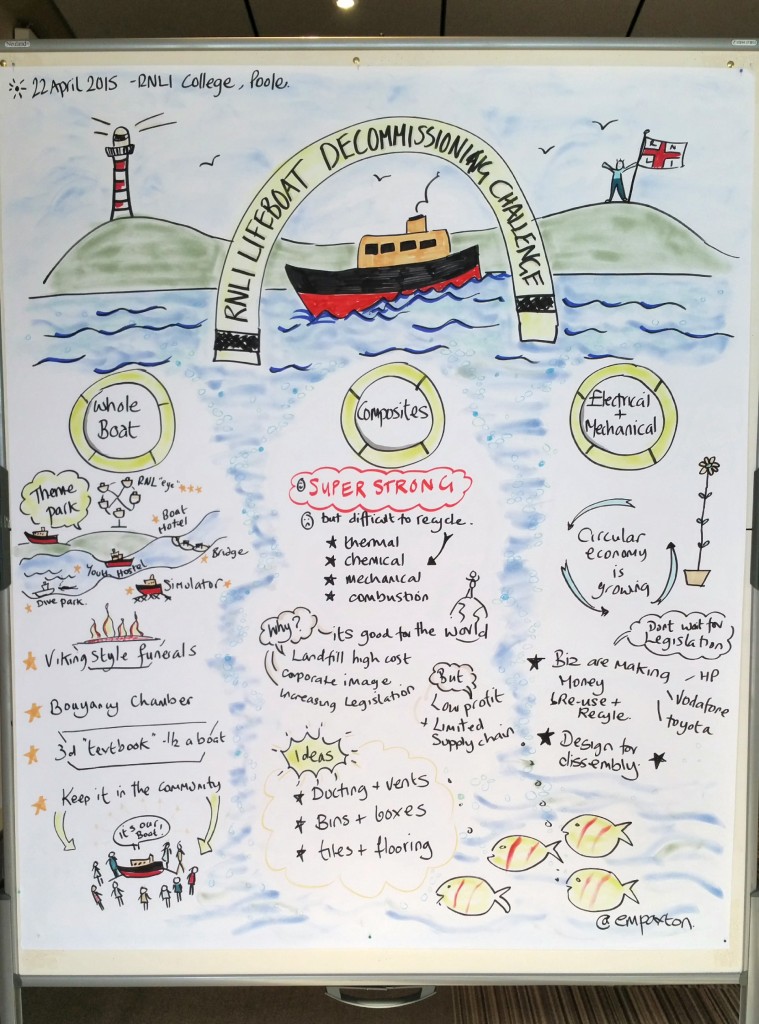 22 April 2015 - RNLI College, Poole.
RNLI LIFEBOAT DECOMMISSIONING CHALLENGE
R N
L I
Whole
Boat
Composites
Electrical
+
Mechanical
Theme
park
RNLI "eye"
Boat
Hotel
Bridge
Youth Hostel
Simulator
Dive park.
Viking Style funerals
Bouyancy Chamber
3d "textbook" - 1/2 a boat
Keep it in the community
it's our
Boat!
SUPER STRONG
but difficult to recycle.
★ thermal
★ chemical
★ mechanical
★ combustion
Why? - its good for the world
Landfill high cost
corporate image
increasing Legislation
But
Low profit
+ Limited
Supply chain
Ideas
★ Ducting + vents
★ Bins + boxes
★ tiles + flooring
Circular
economy
is
growing
Dont wait for
Legislation
★ Biz are making
Money
Re-use +
Recyle.
- HP
Vodafone
toyota
★ Design for
dissembly. ★
@empaxton.